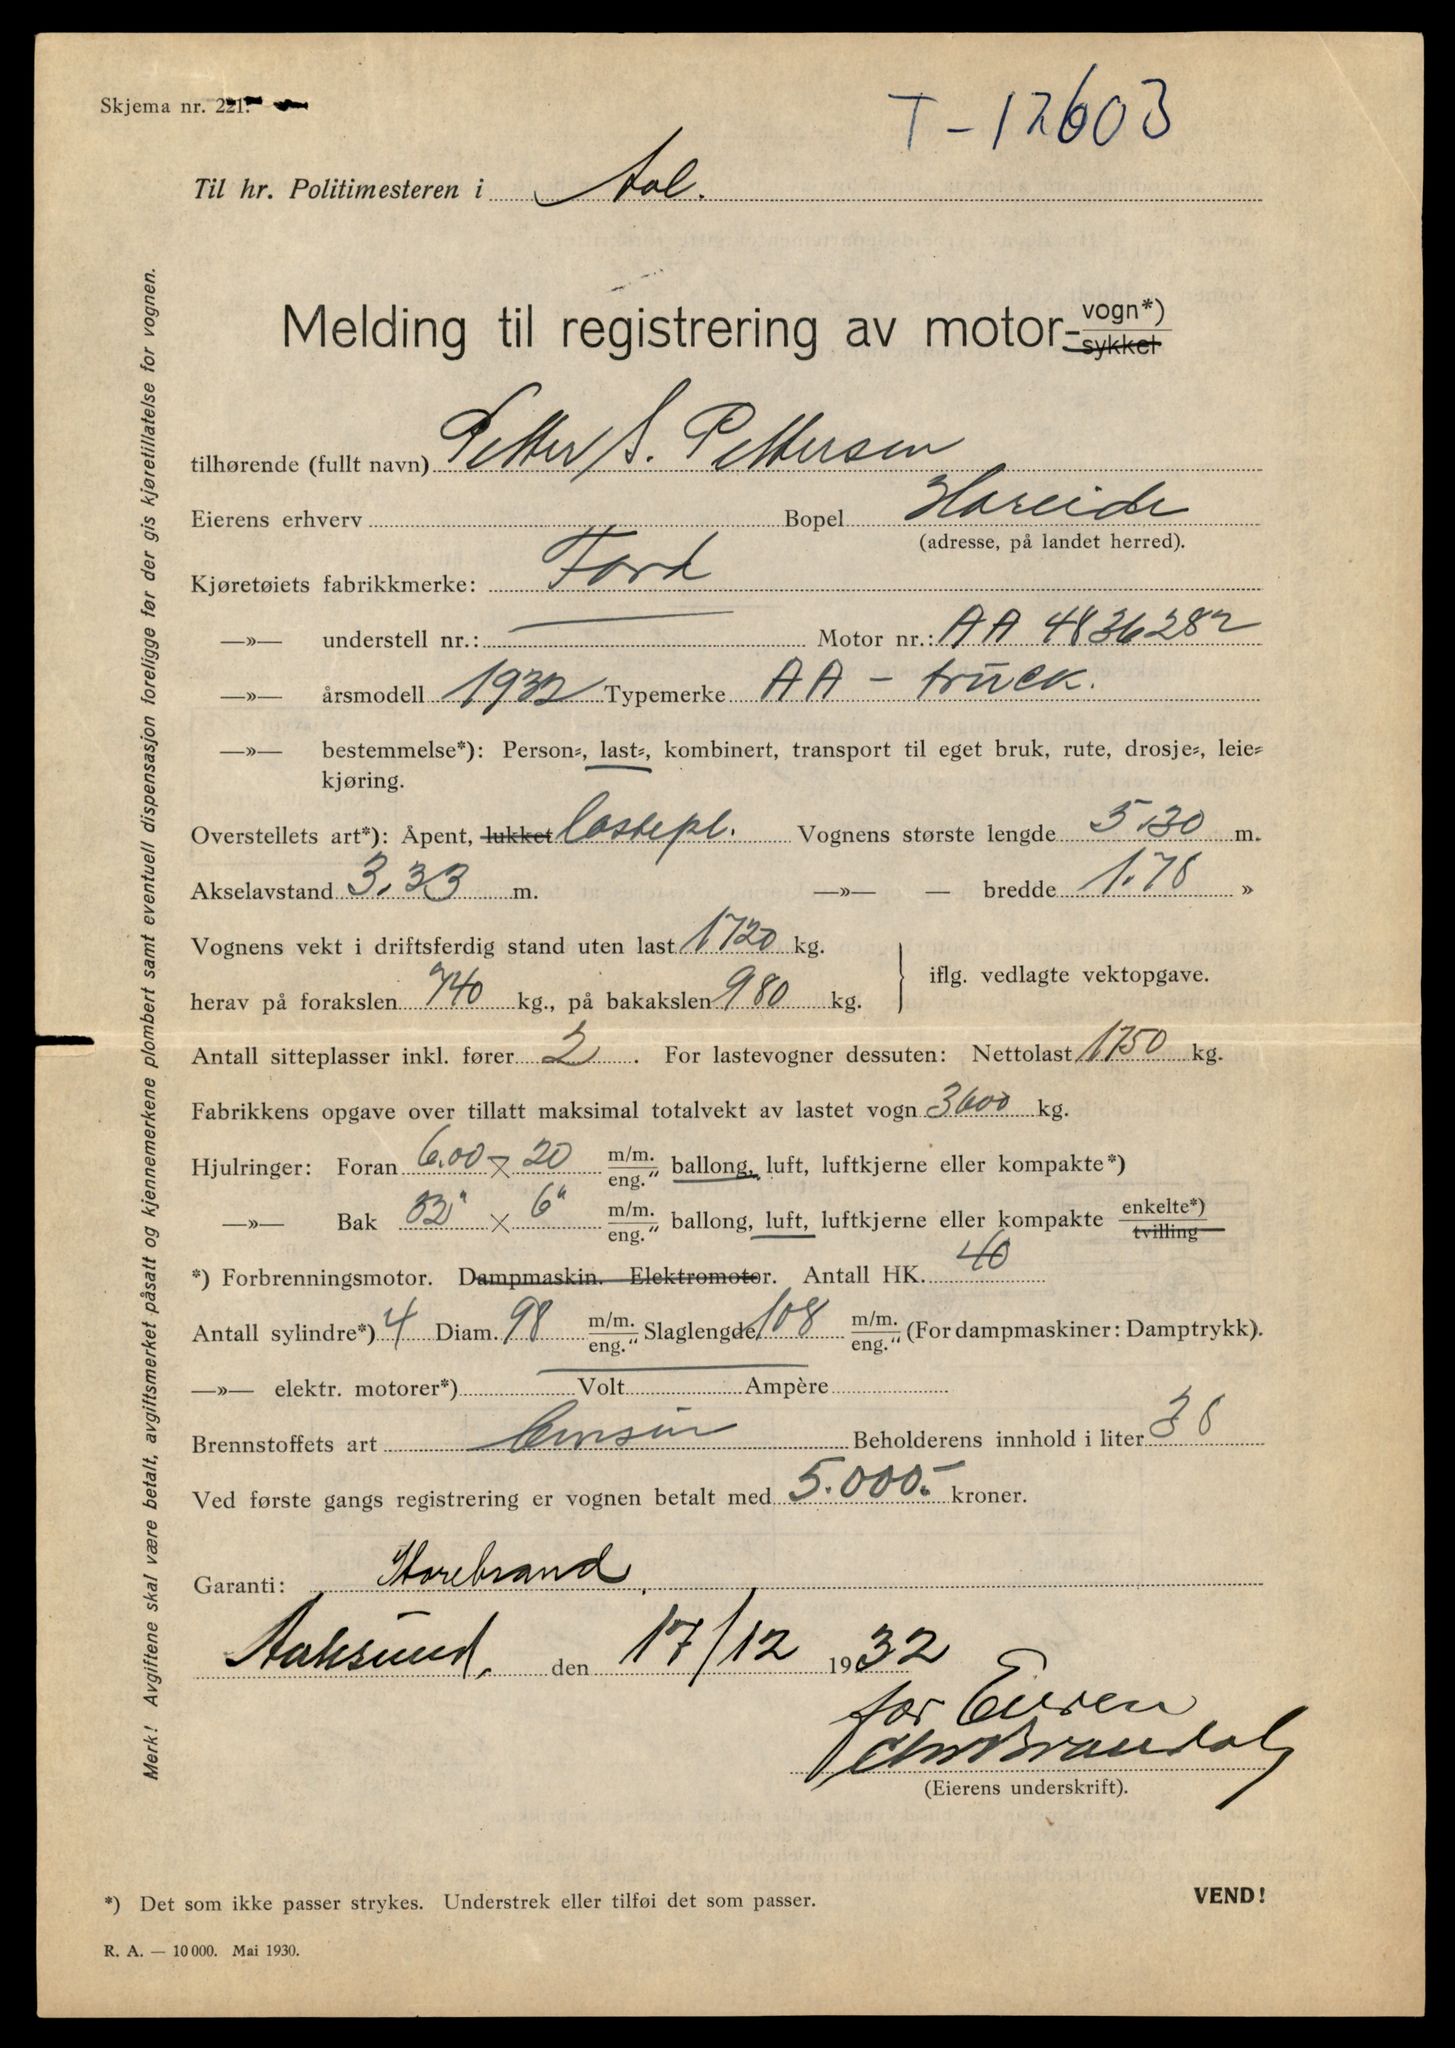 Skjema nr. 221.
T-12603
Til hr. Politimesteren i Aal.
Melding til registrering av motor-vogn*)
sykkel
tilhørende (fullt navn) Petter S. Pettersen
Eierens erhverv Bopel Hareide
(adresse, på landet herred).
Kjøretøiets fabrikkmerke: Ford
—»— understell nr.: Motor nr.: AA 4836282
—»— årsmodell 1932 Typemerke AA - truck.
—»— bestemmelse*): Person-, last-, kombinert, transport til eget bruk, rute, drosje-, leie-
kjøring.
Overstellets art*): Åpent, lukket lastepl. Vognens største lengde 5.30 m.
Akselavstand 3.33 m. —»— — bredde 1.78 »
Vognens vekt i driftsferdig stand uten last 1720 kg.
herav på forakslen 740 kg., på bakakslen 980 kg. iflg. vedlagte vektopgave.
Antall sitteplasser inkl. fører 2. For lastevogner dessuten: Nettolast 1750 kg.
Fabrikkens opgave over tillatt maksimal totalvekt av lastet vogn 3600 kg.
Hjulringer: Foran 6.00 × 20 m/m. eng." ballong, luft, luftkjerne eller kompakte*)
—»— Bak 32" × 6" m/m. eng." ballong, luft, luftkjerne eller kompakte enkelte*) tvilling
*) Forbrenningsmotor. Dampmaskin. Elektromotor. Antall HK. 40
Antall sylindre*) 4 Diam. 98 m/m. eng." Slaglengde 108 m/m. eng." (For dampmaskiner: Damptrykk).
—»— elektr. motorer*) Volt Ampère
Brennstoffets art Bensin Beholderens innhold i liter 38
Ved første gangs registrering er vognen betalt med 5.000.- kroner.
Garanti: Storebrand.
Aalesund, den 17/12 1932
for Eieren
Chr Brandal
(Eierens underskrift).
*) Det som ikke passer strykes. Understrek eller tilføi det som passer.
VEND!
R. A. — 10 000. Mai 1930.
Merk! Avgiftene skal være betalt, avgiftsmerket påsatt og kjennemerkene plombert samt eventuell dispensasjon foreligge før der gis kjøretillatelse for vognen.